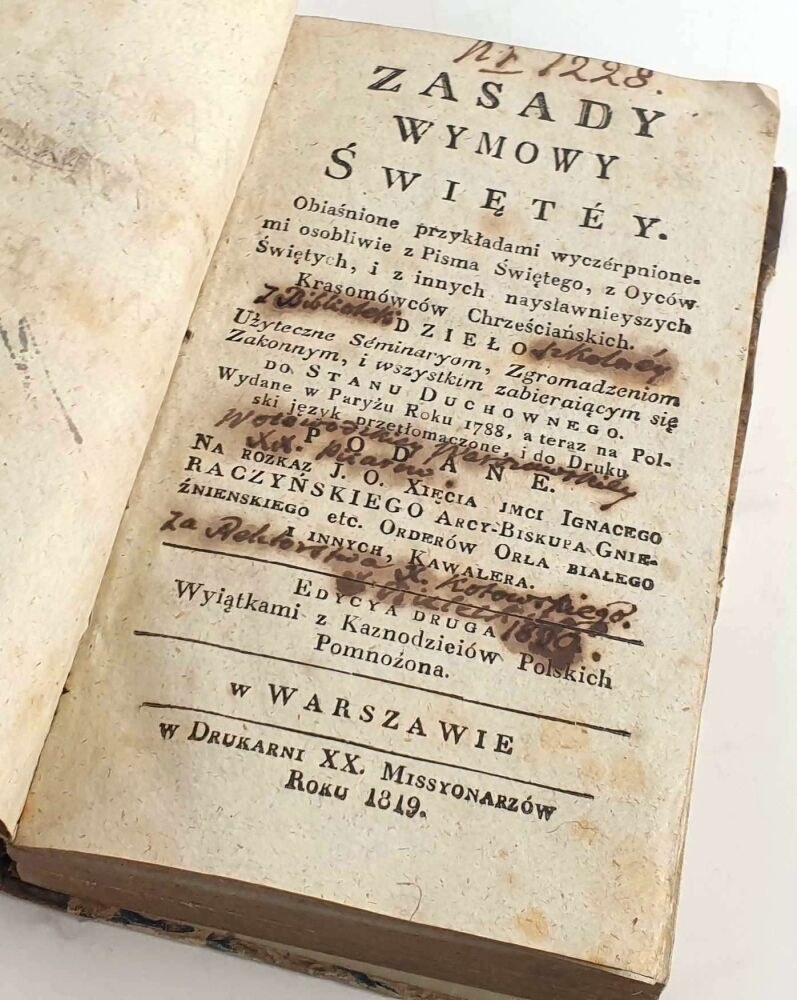 Nr 1228.
ZASADY
WYMOWY
ŚWIĘTÉY.
Obiaśnione przykładami wyczérpnione-
mi osobliwie z Pisma Świętego, z Oyców
Świętych, i z innych naysławnieyszych
Krasomówców Chrześciańskich.
Z Biblioteki szkolnéy
DZIEŁO
Użyteczne Séminaryom, Zgromadzeniom
Zakonnym, i wszystkim zabieraiącym się
DO STANU DUCHOWNEGO.
Wydane w Paryżu Roku 1788, a teraz na Pol-
ski język przetłomaczone, i do Druku
Warszawskiéy
XX. Pijarów.
PODANE.
NA ROZKAZ J. O. XIĘCIA JMCI IGNACEGO
RACZYŃSKIEGO ARCY-BISKUPA GNIE-
ŹNIENSKIEGO etc. ORDERÓW ORŁA BIAŁEGO
I INNYCH, KAWALERA.
Za Rektorstwa X. Kotowskiego.
EDYCYA DRUGA
Wyiątkami z Kaznodzieiów Polskich
Pomnożona.
W WARSZAWIE
W DRUKARNI XX. MISSYONARZÓW
ROKU 1819.